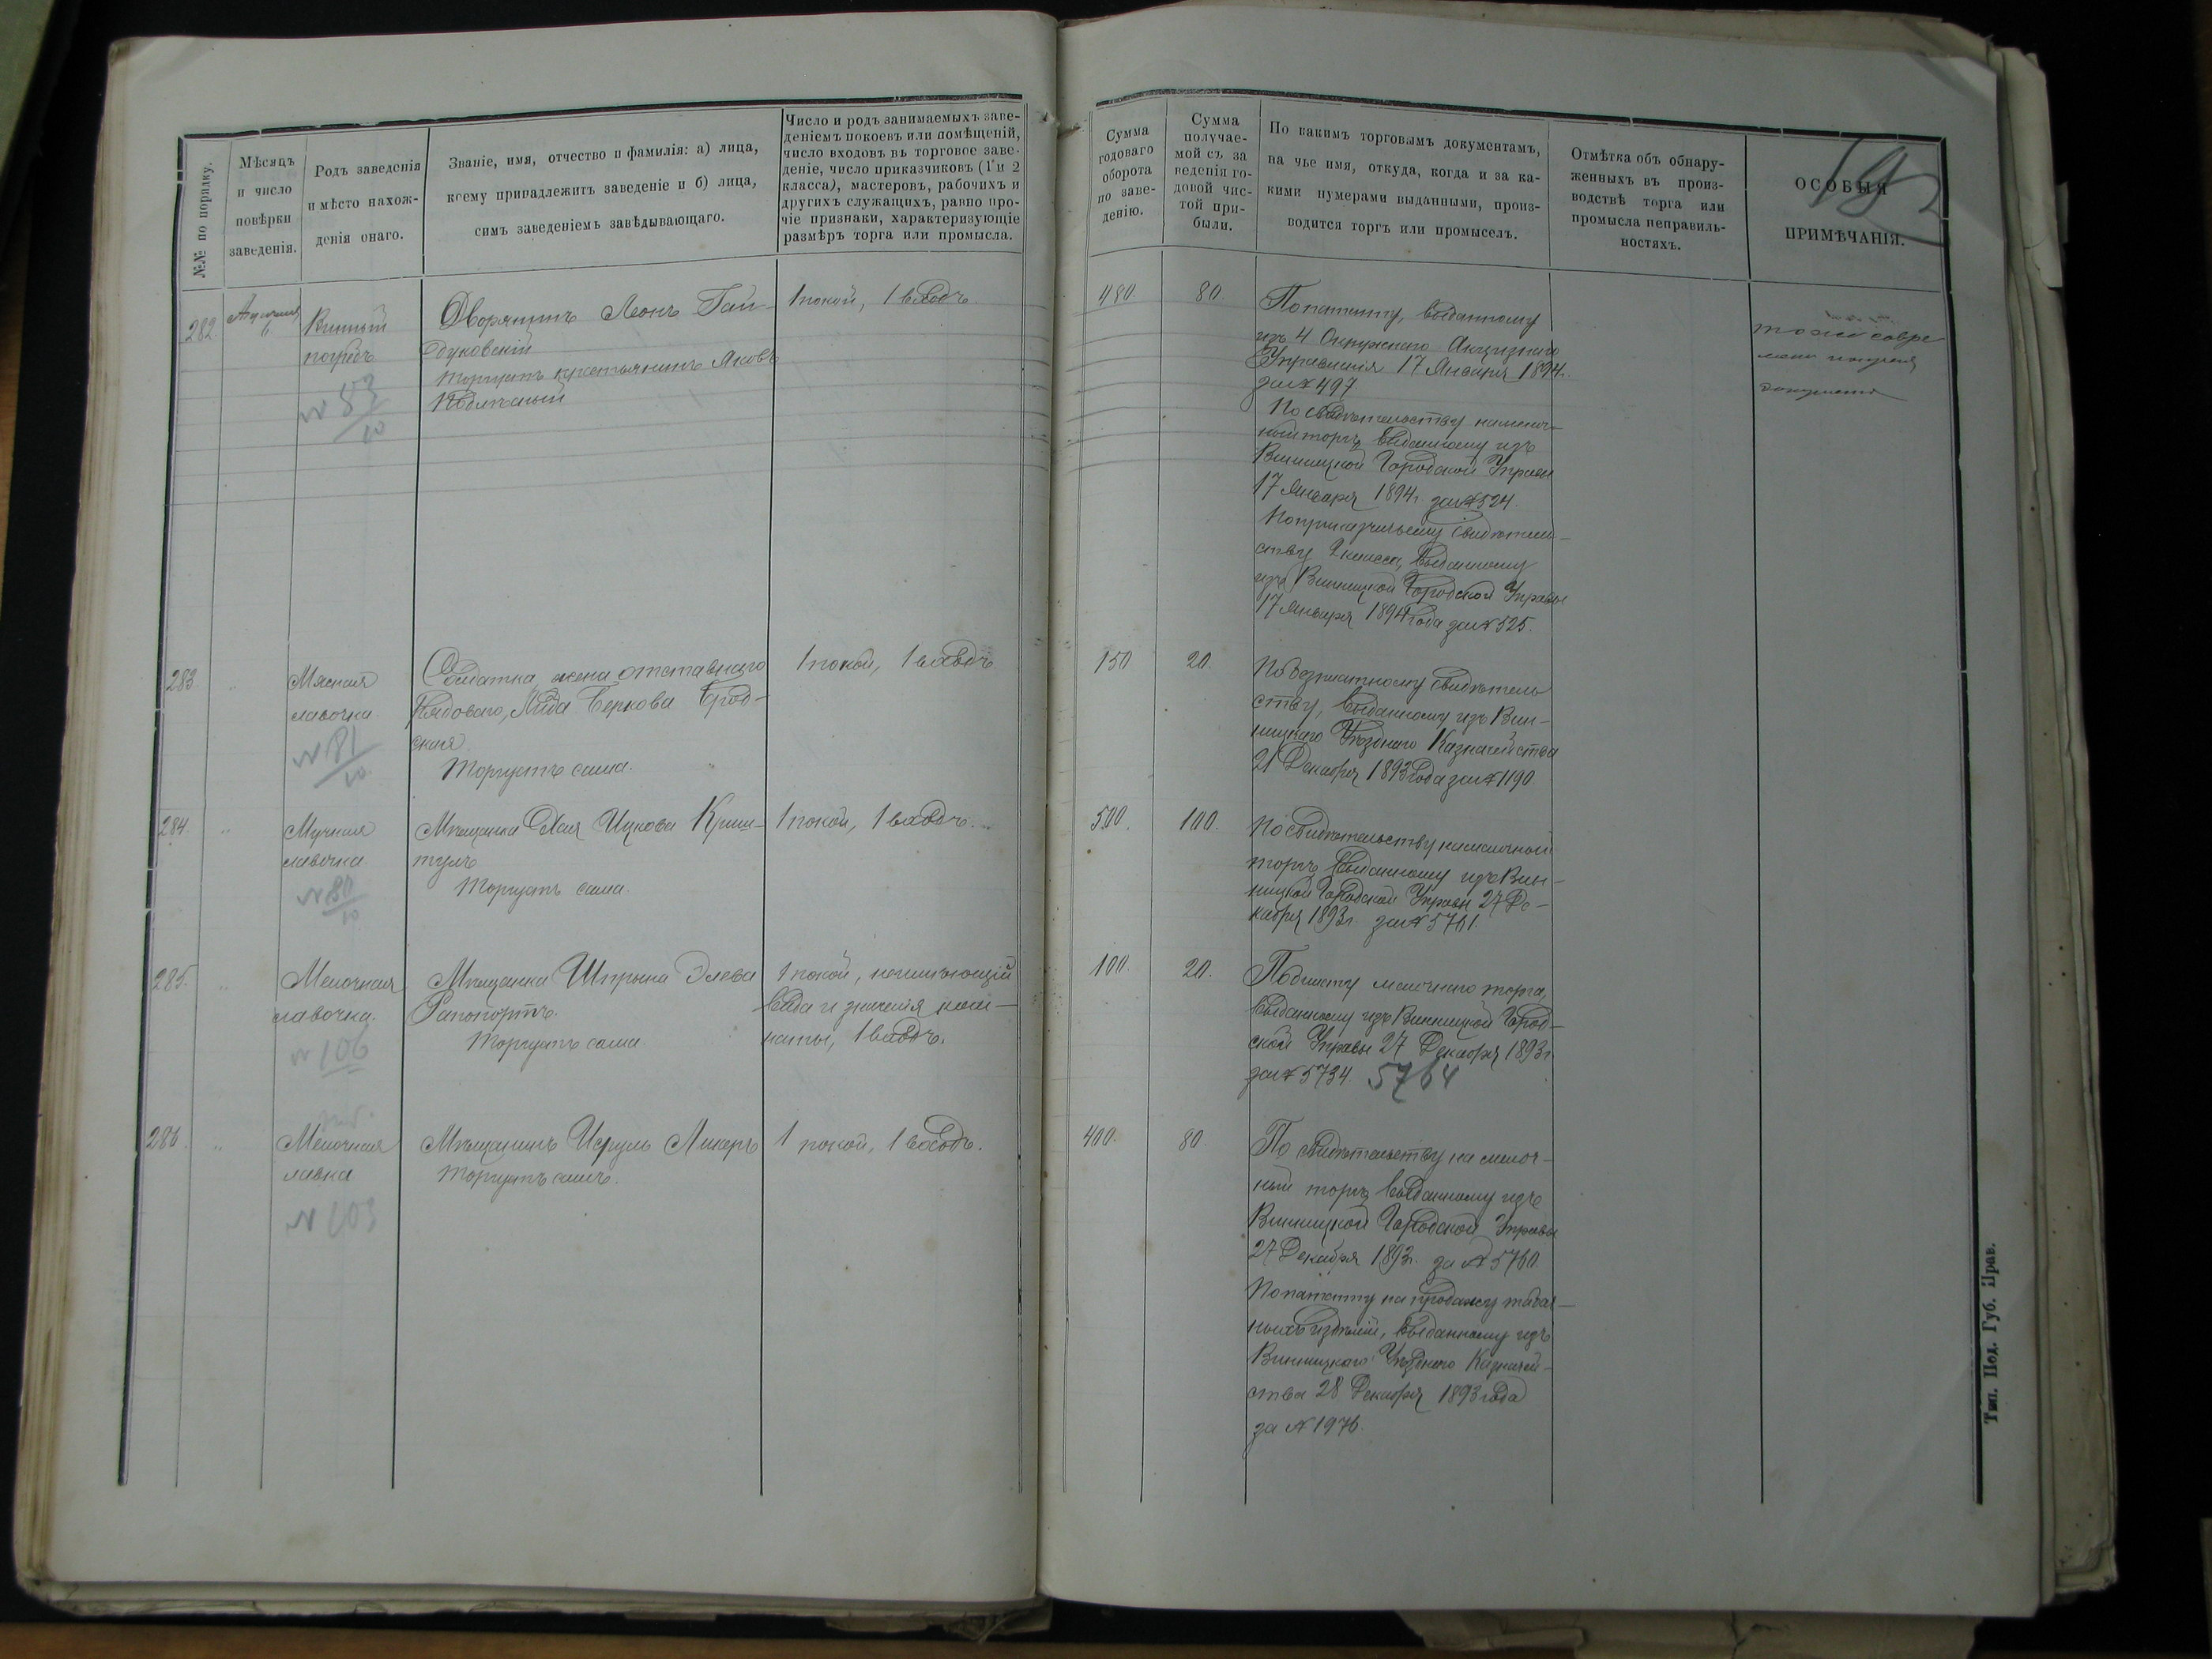 №№ по порядку.
Мѣсяцъ
и число
повѣрки
заведенія.
Родъ заведенія
и мѣсто нахож-
денія онаго.
Званіе, имя, отчество и фамилія: а) лица,
коему принадлежитъ заведеніе и б) лица,
симъ заведеніемъ завѣдывающаго.
Число и родъ занимаемыхъ заве-
деніемъ покоевъ или помѣщеній,
число входовъ въ торговое заве-
деніе, число приказчиковъ (1 и 2
класса), мастеровъ, рабочихъ и
другихъ служащихъ, равно про-
чіе признаки, характеризующіе
размѣръ торга или промысла.
Сумма
годоваго
оборота
по заве-
денію.
Сумма
получае-
мой съ за
веденія го-
довой чис-
той при-
были.
По какимъ торговымъ документамъ,
на чье имя, откуда, когда и за ка-
кими нумерами выданными, произ-
водится торгъ или промыселъ.
Отмѣтка объ обнару-
женныхъ въ произ-
водствѣ торга или
промысла неправиль-
ностяхъ.
ОСОБЫЯ
ПРИМѢЧАНІЯ.
282.
6
Винный
погребъ
№ 53/10
Дворянинъ Леонъ Гай-
дуковскій
Торгуетъ крестьянинъ Яковъ
1 покой, 1 входъ.
480.
80.
По патенту, выданному
изъ 4 Окружнаго Акцизнаго
Управленія 17 Января 1894г.
за № 497
По свидѣтельству на мелоч-
ный торгъ, выданному изъ
Винницкой Городской Управы
17 Января 1894г. за № 524.
По приказчичьему свидѣтель-
ству 2 класса, выданному
изъ Винницкой Городской Управы
17 Января 1894 года за № 525.
283.
"
Мясная
лавочка
№ 81/10
Солдатка, жена отставнаго
рядового, Беркова Брод-
ская
Торгуетъ сама.
1 покой, 1 входъ
150
20.
По безплатному свидѣтель
ству, выданному изъ Вин-
ницкаго Уѣзднаго Казначейства
21 Декабря 1893 года за № 1190
284
"
Мучная
лавочка
№ 80/10
Мѣщанка Хая Ицкова Криш-
тулъ
Торгуетъ сама.
1 покой, 1 входъ.
500.
100.
По свидѣтельству на мелочной
торгъ выданному изъ Вин-
ницкой Городской Управы 27 Де-
кабря 1893г. за № 5761.
285.
"
Мелочная
лавочка.
№ 106
Мѣщанка Шпрына Элева
Рапопортъ.
Торгуетъ сама
1 покой, неимѣющій
вида и значенія ком-
наты, 1 входъ.
100.
20.
По билету мелочнаго торга,
выданному изъ Винницкой Город-
ской Управы 27 Декабря 1893г.
за № 5734. 5764
286.
"
Мелочная
лавка
№ 103
Мѣщанинъ Исруль Ликеръ
Торгуетъ самъ.
1 покой, 1 входъ.
400.
80.
По свидѣтельству на мелоч-
ный торгъ, выданному изъ
Винницкой Городской Управы
27 Декабря 1893г. за № 5760.
По патенту на продажу табач-
ныхъ издѣлій, выданному изъ
Винницкаго Уѣзднаго Казначей-
ства 28 Декабря 1893 года
за № 1976.
Тип. Под. Губ. Прав.